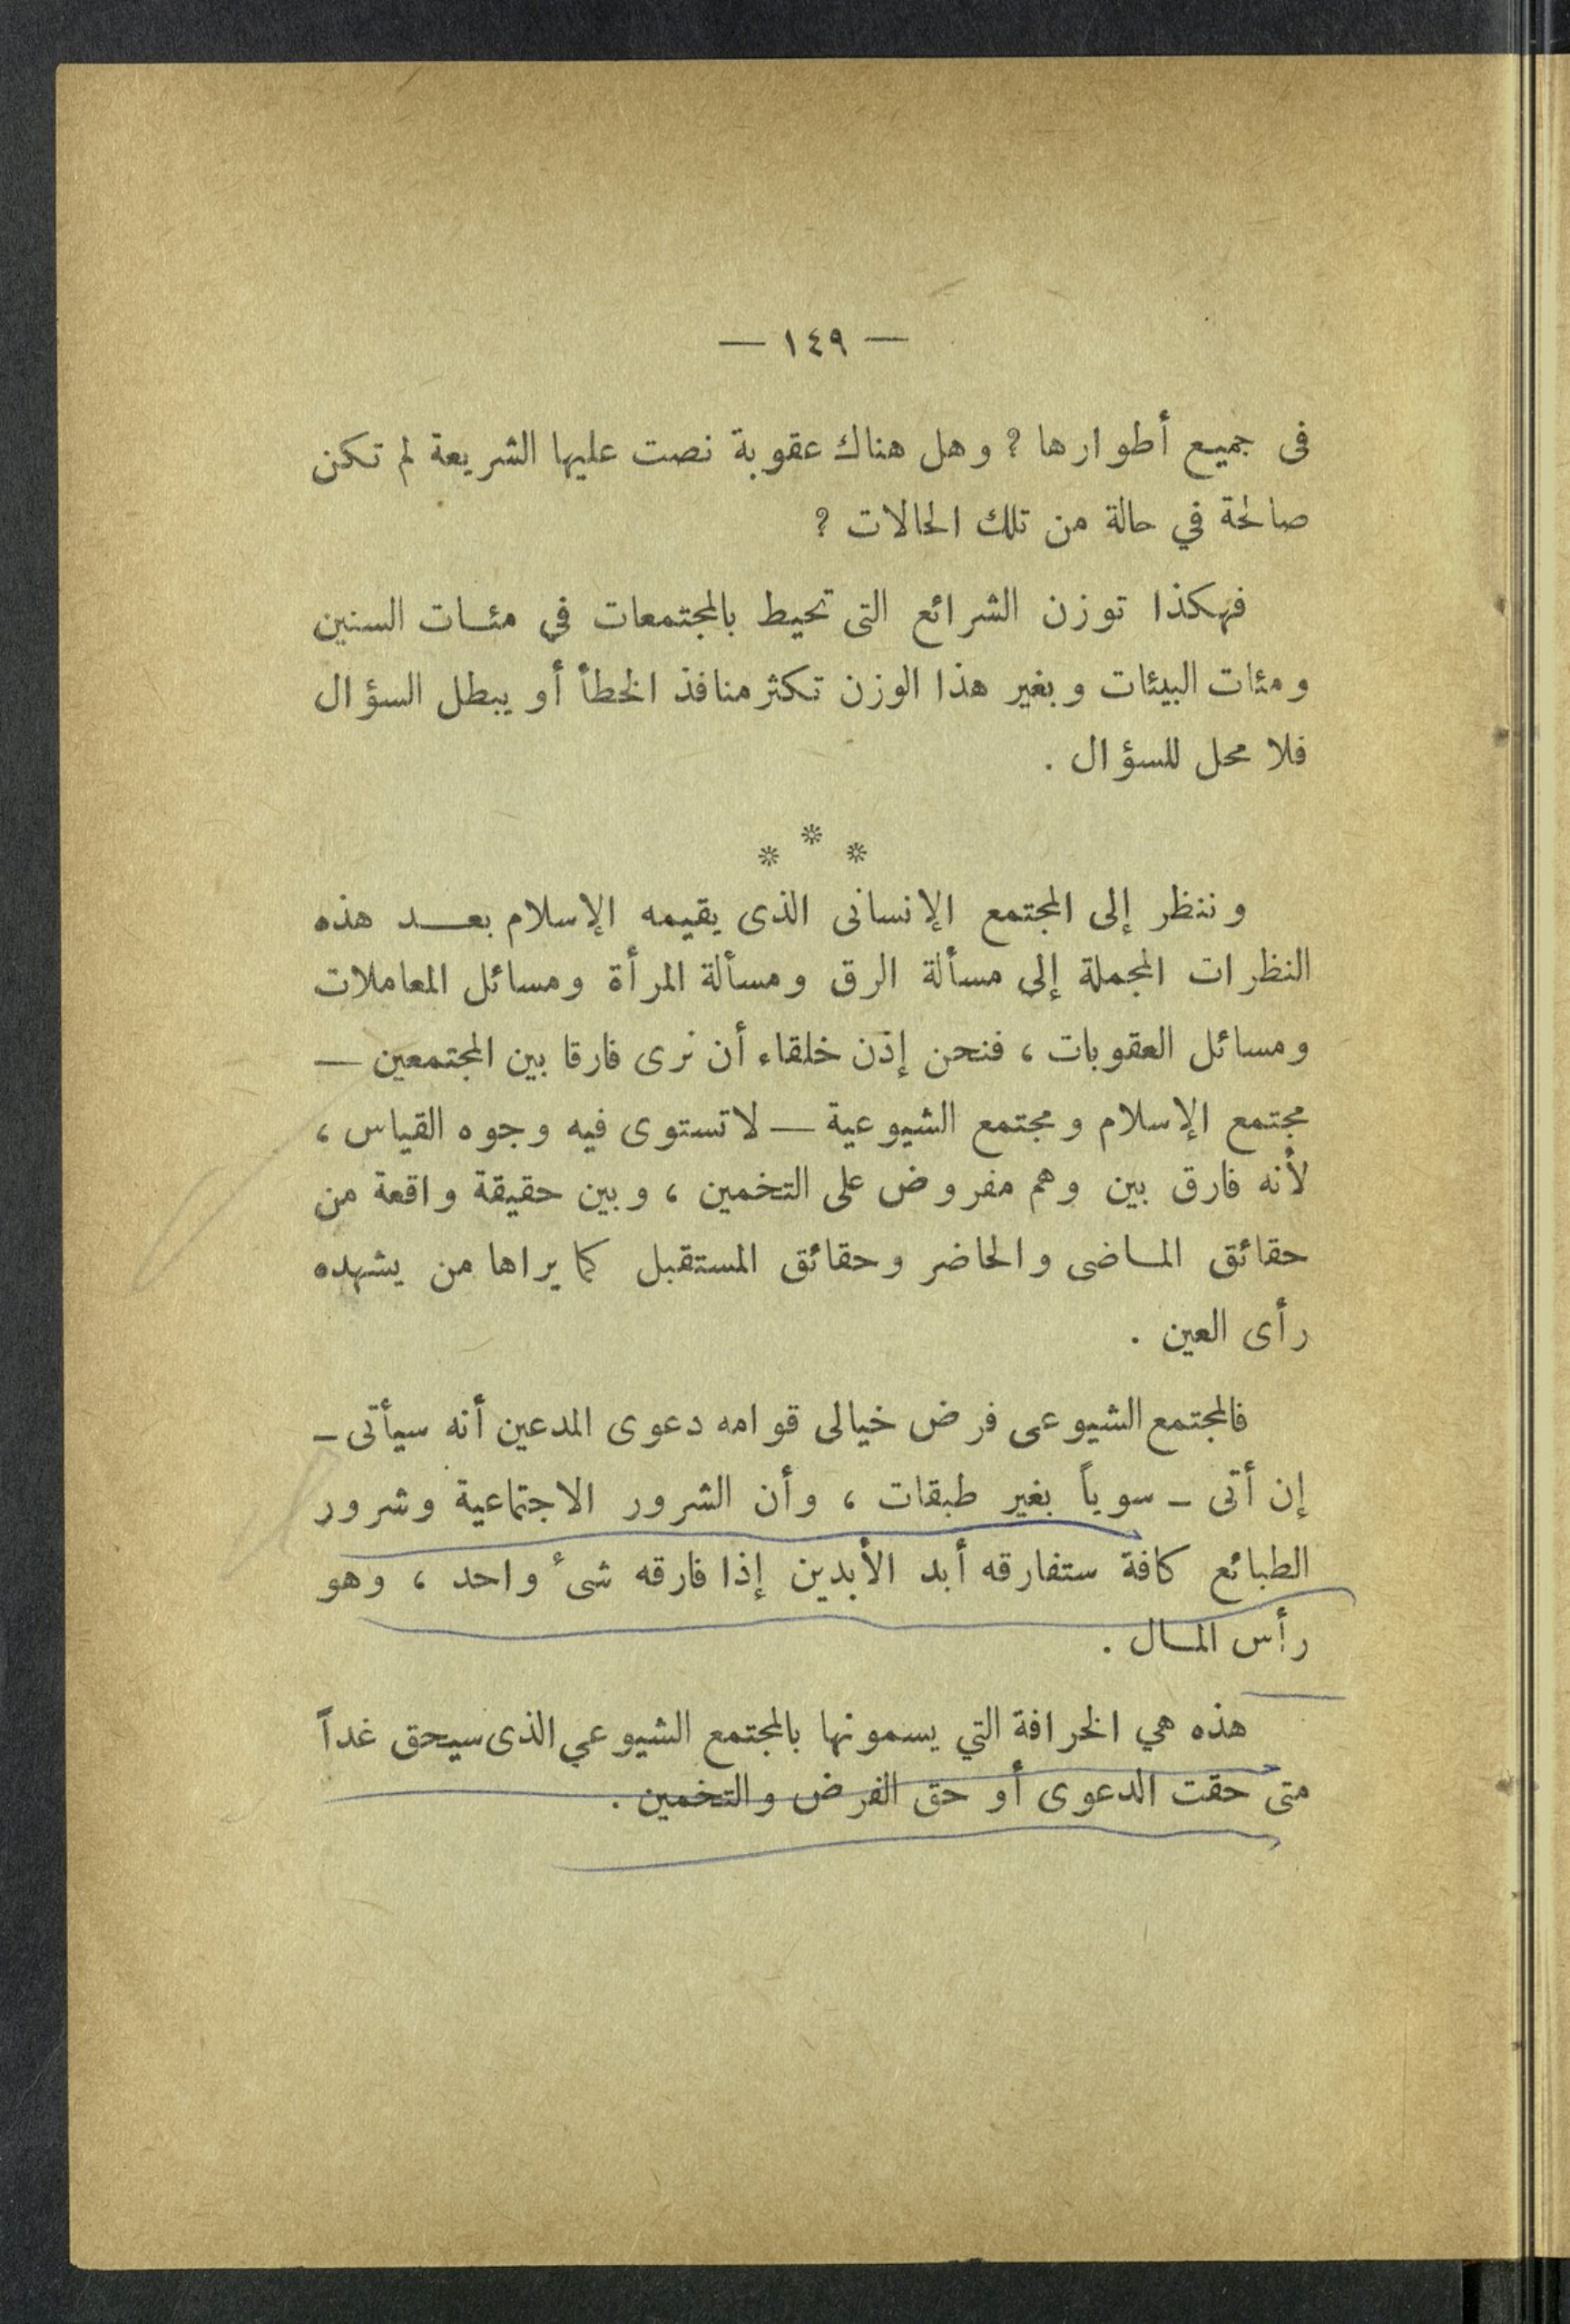 — ١٤٩ —
فى جميع أطوارها ؟ وهل هناك عقوبة نصت عليها الشريعة لم تكن
صالحة في حالة من تلك الحالات ؟
فهكذا توزن الشرائع التى تحيط بالمجتمعات في مئات السنين
ومئات البيئات وبغير هذا الوزن تكثر منافذ الخطأ أو يبطل السؤال
فلا محل للسؤال .
* * *
وننظر إلى المجتمع الإنسانى الذى يقيمه الإسلام بعد هذه
النظرات المجملة إلى مسألة الرق ومسألة المرأة ومسائل المعاملات
ومسائل العقوبات ، فنحن إذن خلقاء أن نرى فارقا بين المجتمعين —
مجتمع الإسلام ومجتمع الشيوعية — لا تستوى فيه وجوه القياس ،
لأنه فارق بين وهم مفروض على التخمين ، وبين حقيقة واقعة من
حقائق الماضى والحاضر وحقائق المستقبل كما يراها من يشهده
رأى العين .
فالمجتمع الشيوعى فرض خيالى قوامه دعوى المدعين أنه سيأتى —
إن أتى — سوياً بغير طبقات ، وأن الشرور الاجتماعية وشرور
الطبائع كافة ستفارقه أبد الأبدين إذا فارقه شىء واحد ، وهو
رأس المال .
هذه هي الخرافة التي يسمونها بالمجتمع الشيوعي الذى سيحق غداً
متى حقت الدعوى أو حق الفرض والتخمين .